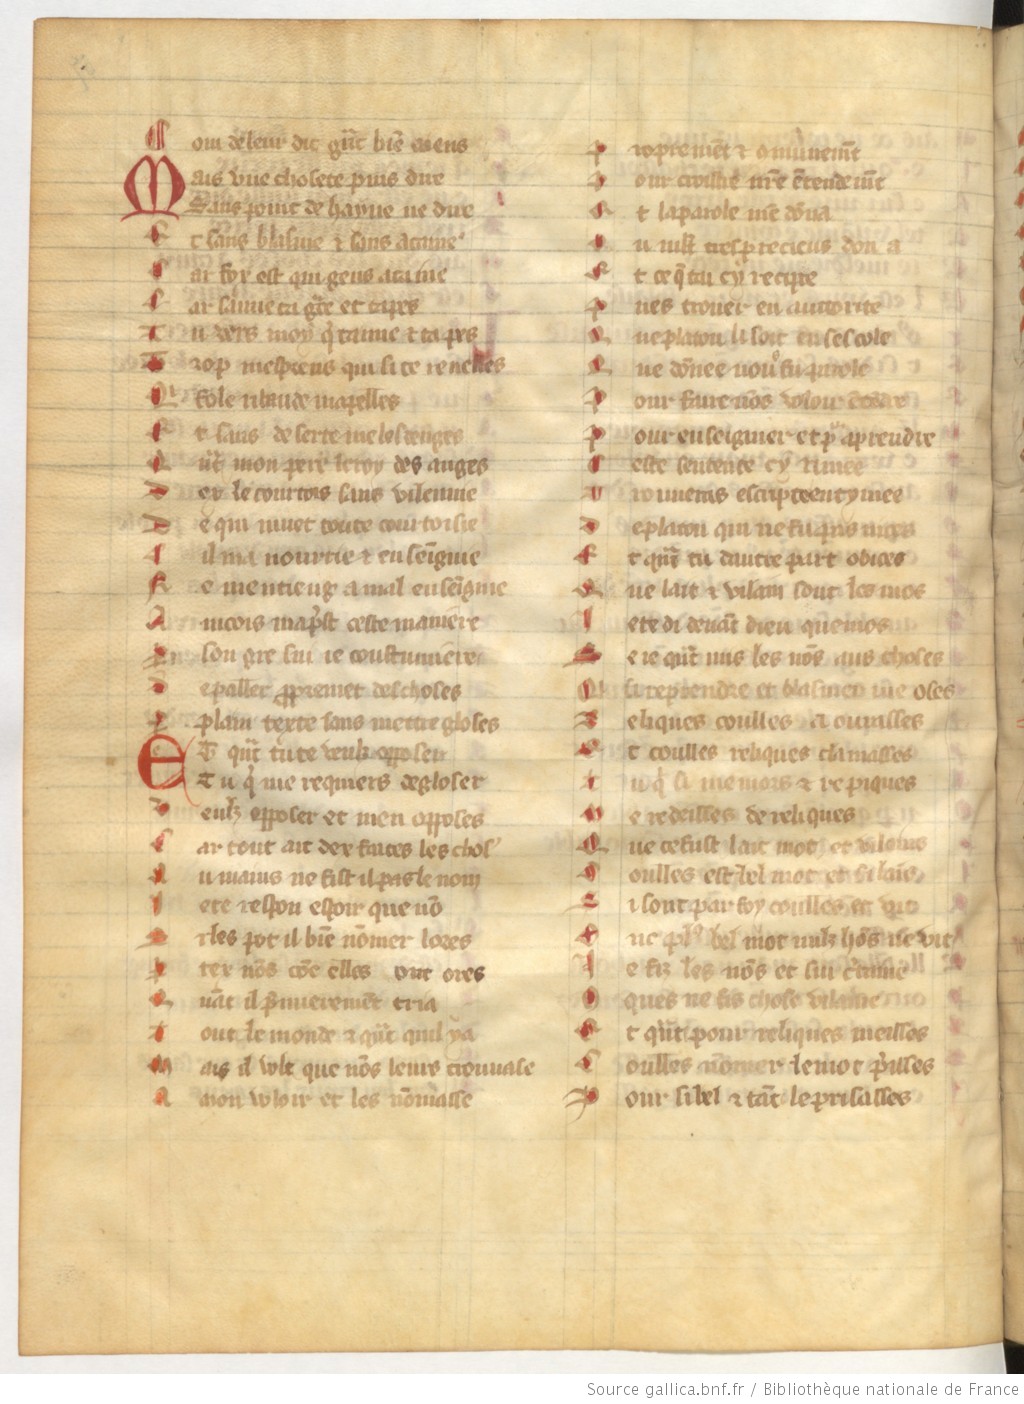 oui de leur dit qñt biẽ aiens
Mais vne chosete puis due
Sans point de hayne ne due
E t sans blasme ⁊ sans ataine
ar foy est qui gens ataine
ar sauue ta gr̃e et ta pes
T u vers moy q̃ taime ⁊ ta pes
T rop mespreus qui si te reuelles
fole ribaude mapelles
E t sans deserte me lesdenges
Q ñt mon pere le roy des anges
D ex le courtois sans vilennie
D e qui muet toute courtoisie
I il ma nourrie ⁊ enseĩgnie
N e me tieng a mal enseĩgnie
A incois map̃st ceste maniere
P son gre sui ie coustumiere
D e paller proprement des choses
plain texte sans mettre gloses
ET qñt tu te veulz opposer
T u q̃ me requiers de gloser
V eulz opposer et men opposes
ar tout ait dex faites les chos
u mains ne fist il pas le nom
I ete respon espoir que nõ
les pot il biẽ nõmer lores
ter nõs cõe elles ont ores
Q uãt il p̃mieremẽt cria
T out le monde ⁊ qñt quil y a
M ais il volt que nõs leurs trouuasse
A mon voloir et les nõmasse
P ropremẽt ⁊ cõmunemẽt
P our croistre nr̃e ẽtendemẽt
E t la parole mẽt dõna
u mlt tresprecieus don a
E t ce q̃ tu cy recipte
P ues trouer en autorite
Q ue platon lisoit en sescole
Q ue dõnee nous fu parole
P our faire nos voloir ẽtẽdre
P our enseignier et pr̃ aprendre
C este sentence cy rimee
T rouueras escripte en tymee
D e platon qui ne fu pas nices
E t qñt tu dautre part obices
Q ue lait ⁊ vilain sont les mos
I ete di deuãt dieu que mos
S e ie qñt mis les nõs aus choses
si reprendre et blasmer me oses
R eliques coulles apelasses
E t coulles reliques clamasses
T u q̃ si me mors ⁊ repiques
M e redeisses de reliques
Q ue ce fust lait mot et vilains
C oulles est bel mot et si lais
I sont par foy coulles et vit
nc pl9 bel mot nulz hõs ne vit
I e fiz les nõs et sui c̃taine
ques ne fis chose vilaine
E t qñt pour reliques meisses
C oulles nõmer le mot p̃isses
P our si bel ⁊ tãt le prisasses